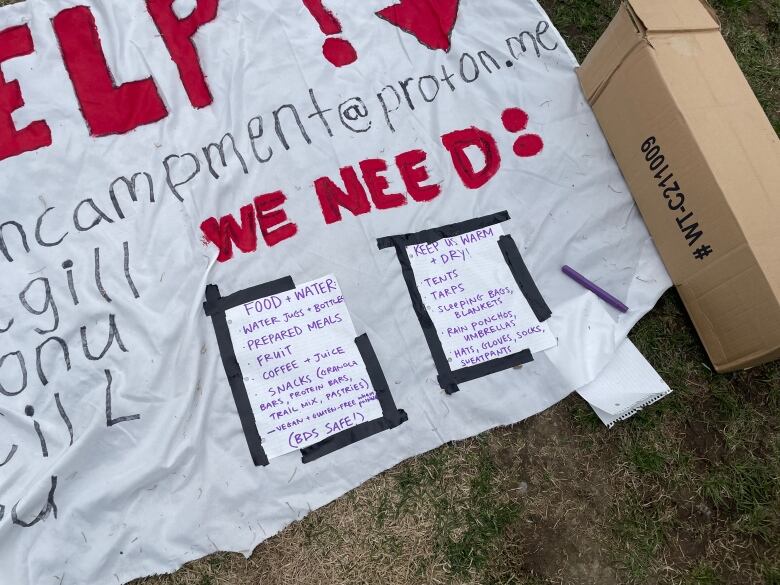 ELP!
ncampment@proton.me
WE NEED:
gill
onu
ill
FOOD + WATER:
· WATER JUGS + BOTTLES
· PREPARED MEALS
· FRUIT
· COFFEE + JUICE
· SNACKS (GRANOLA
BARS, PROTEIN BARS,
TRAIL MIX, PASTRIES)
— VEGAN + GLUTEN-FREE when possible
(BDS SAFE!)
KEEP US WARM
+ DRY!
· TENTS
· TARPS
· SLEEPING BAGS,
BLANKETS
· RAIN PONCHOS,
UMBRELLAS
· HATS, GLOVES, SOCKS,
SWEATPANTS
# WT-C211009